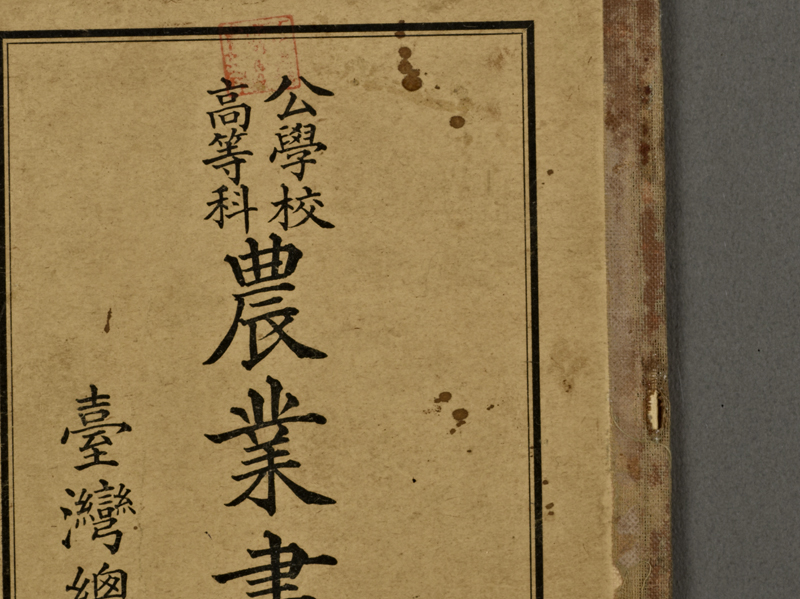 公學校
高等科
農業書
臺灣總